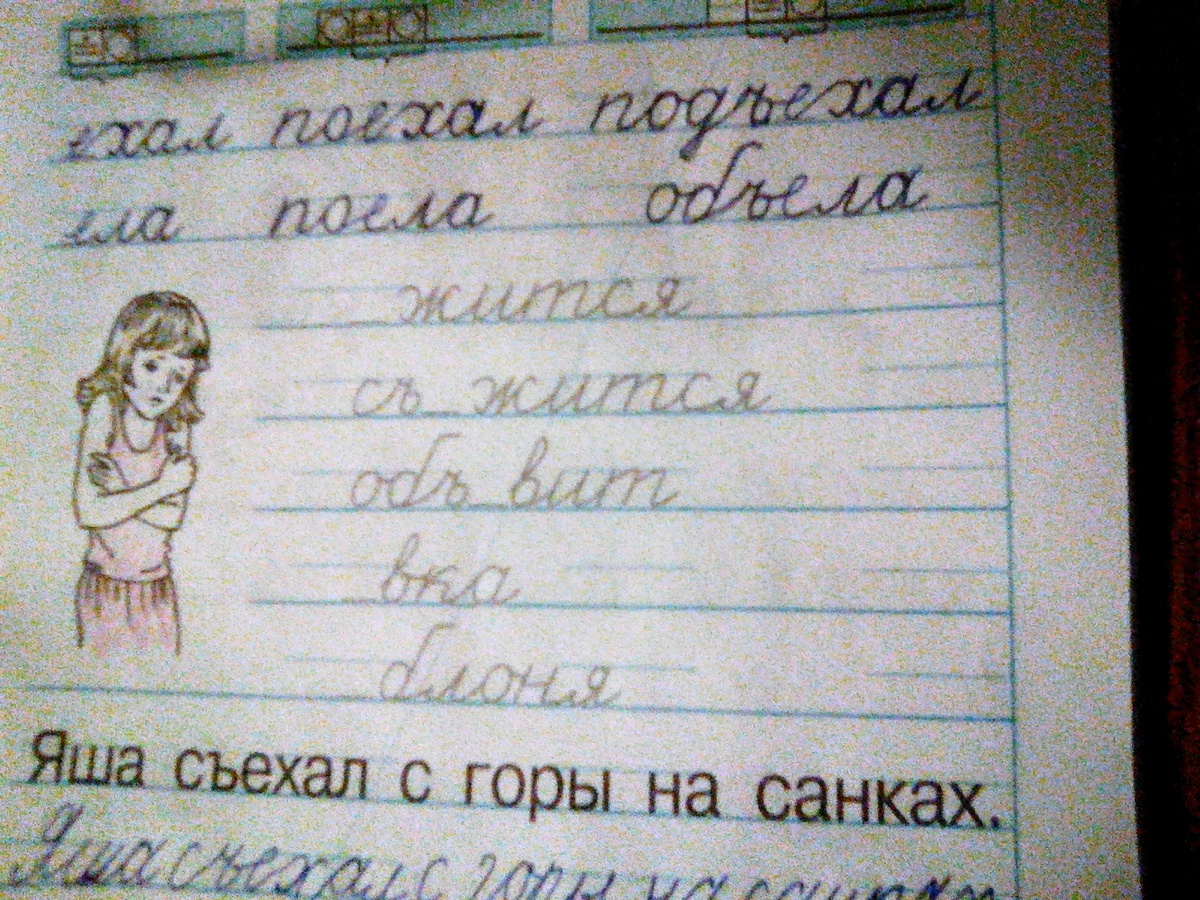 ехал поехал подъехал
ела поела объела
_жится
съ_жится
объ_вит
_вка
_блоня
Яша съехал с горы на санках.
Яша съехал с горы на санках